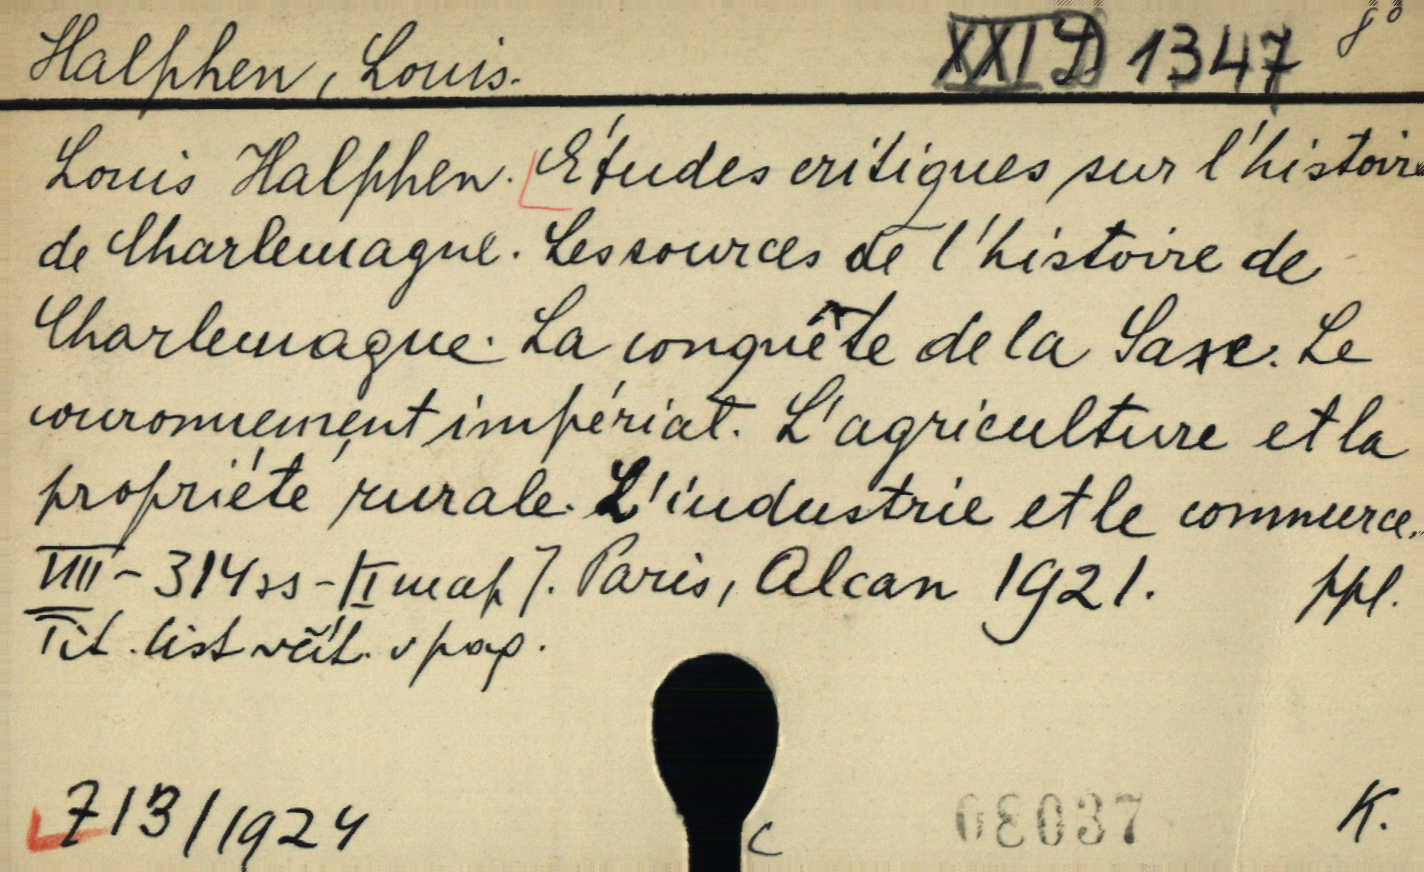 Halphen, Louis. XXI D 1347 8°
Louis Halphen. Études critiques sur l'histoire
de Charlemagne. Les sources de l'histoire de
Charlemagne. La conquête de la Saxe. Le
couronnement impérial. L'agriculture et la
propriété rurale. L'industrie et le commerce.
VIII - 314 ss - II map]. Paris, Alcan 1921. ppl.
Tit. list včít. v pag.
713/1924 c K.